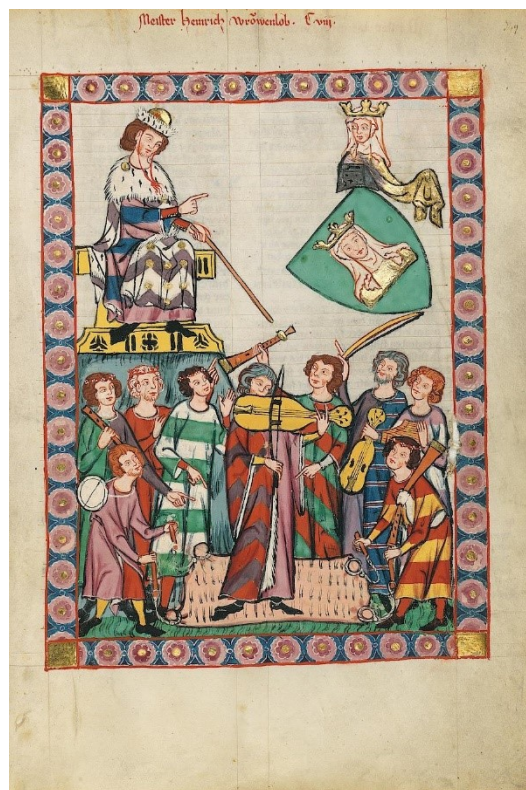 Meister Heinrich Vrowenlob. C viij.